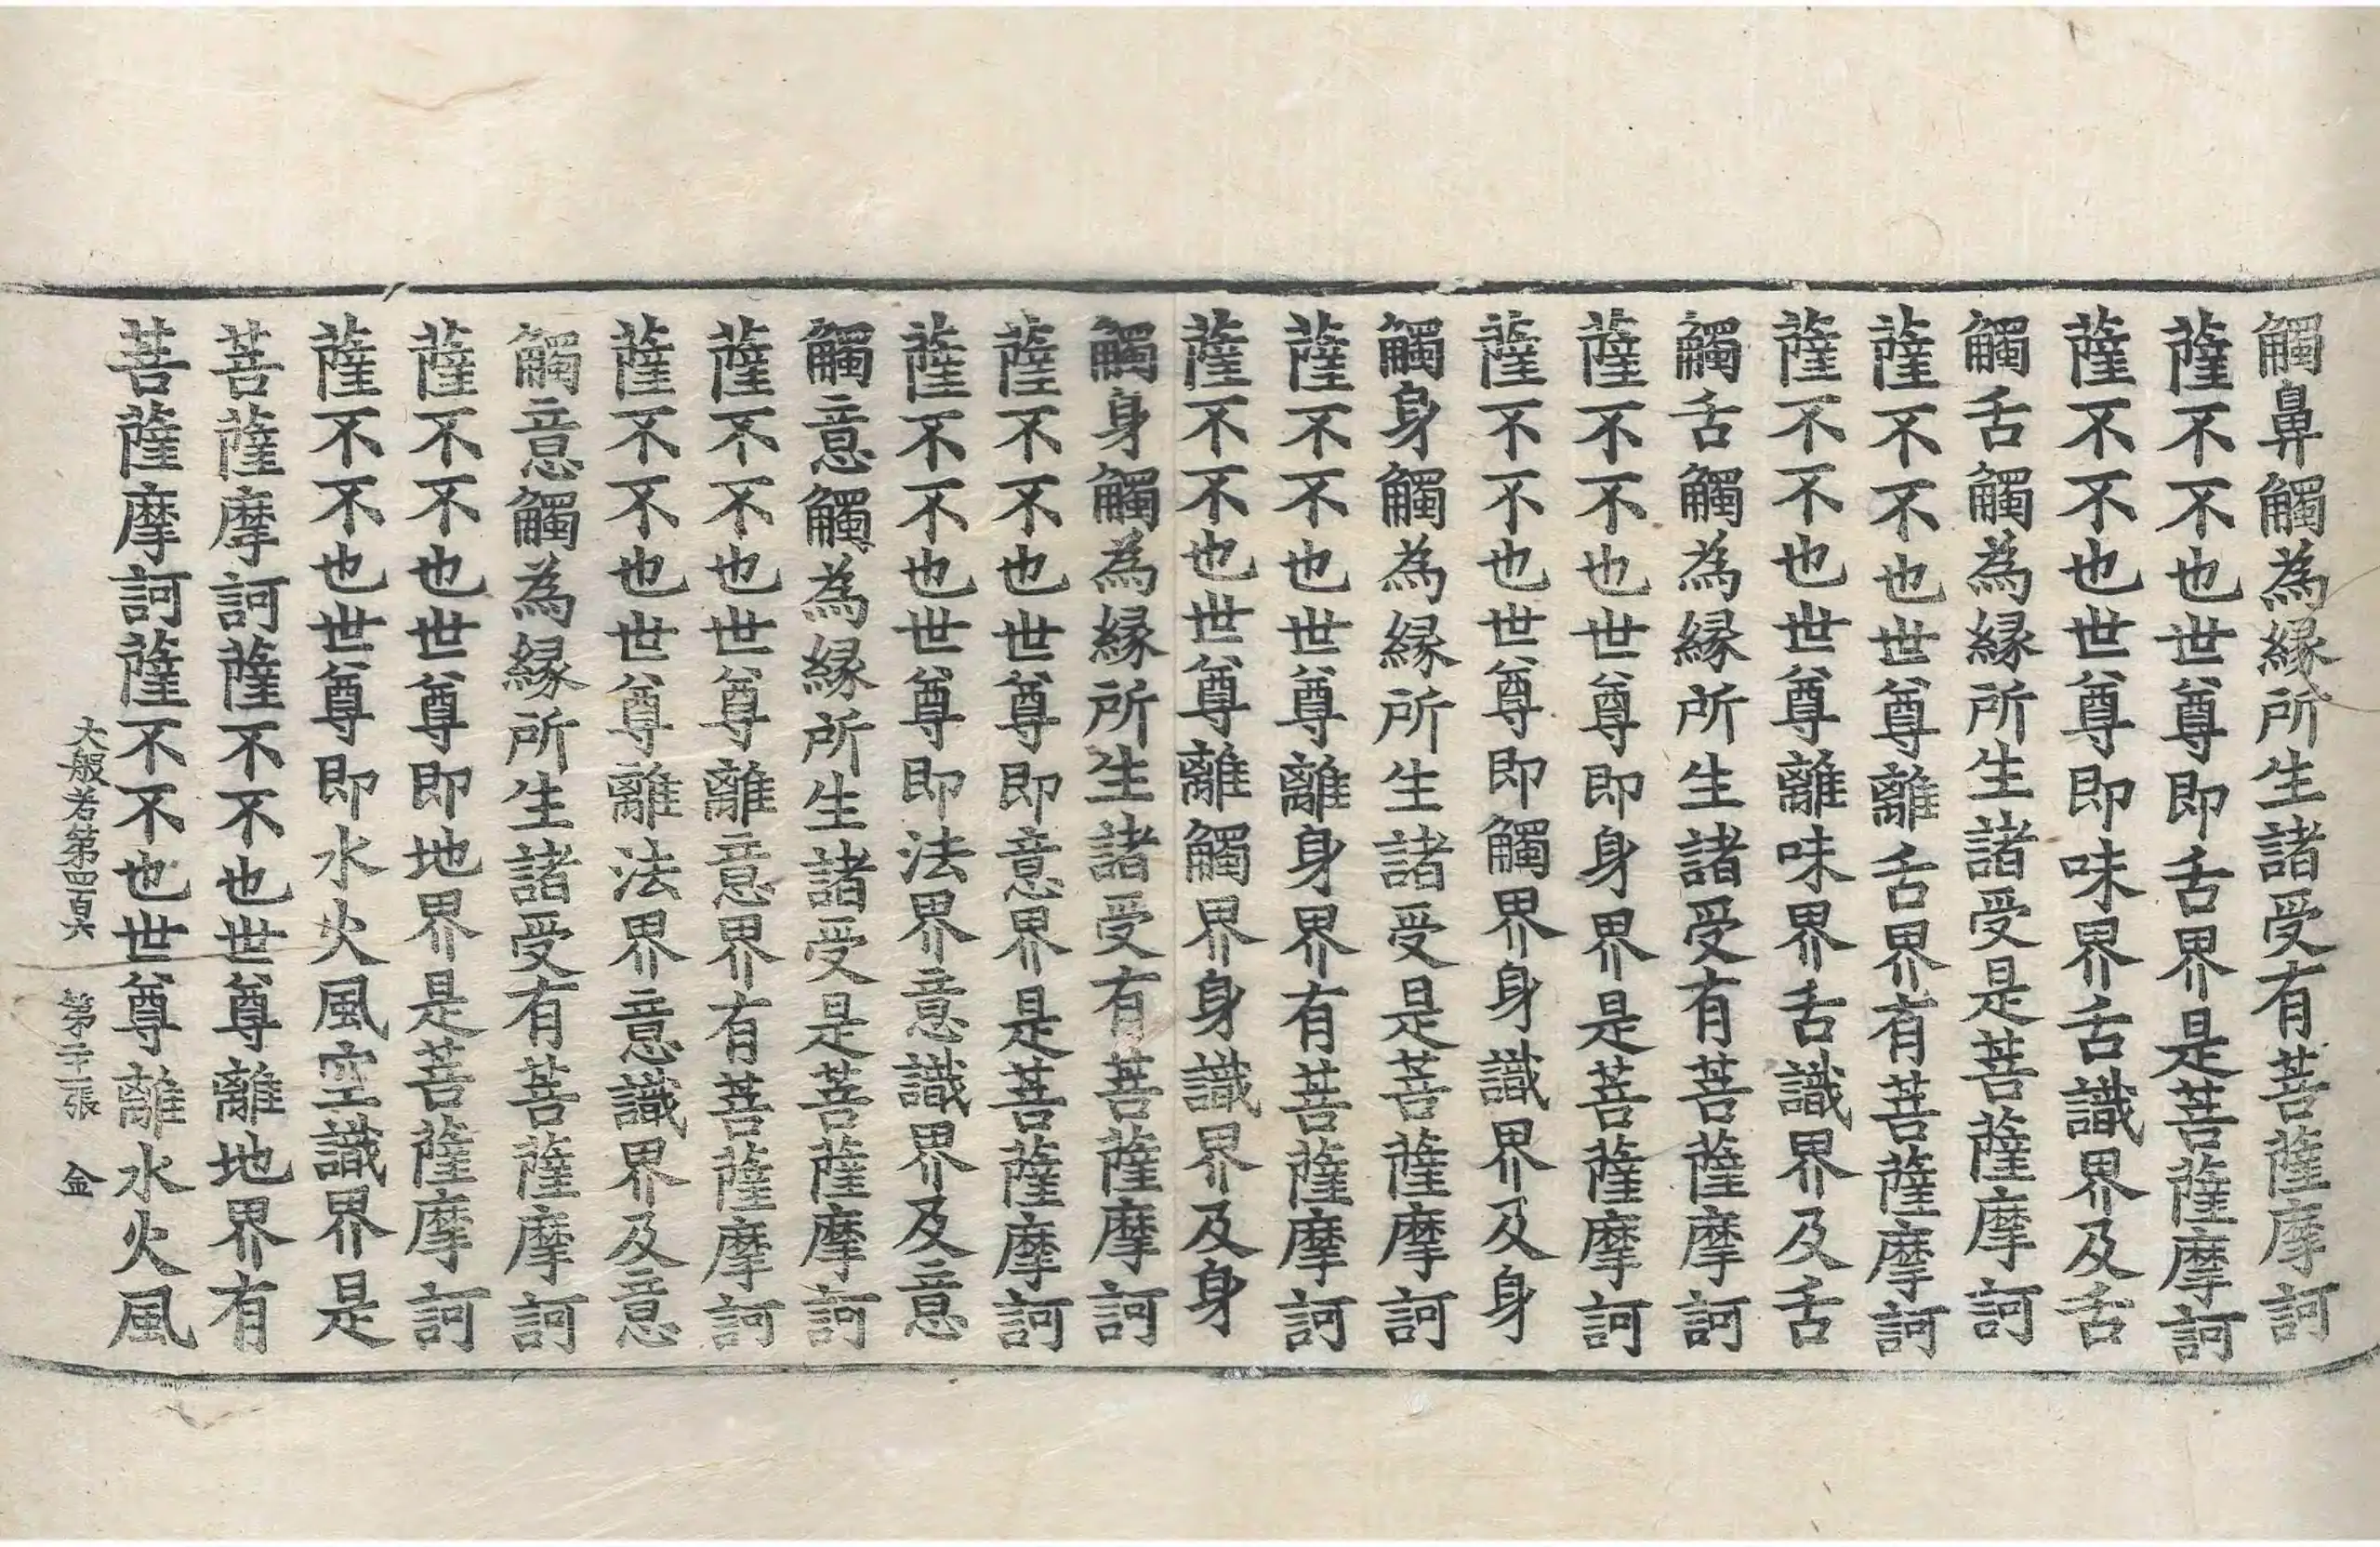 觸鼻觸為縁所生諸受有菩薩摩訶
薩不不也世尊即舌界是菩薩摩訶
薩不不也世尊即味界舌識界及舌
觸舌觸為縁所生諸受是菩薩摩訶
薩不不也世尊離舌界有菩薩摩訶
薩不不也世尊離味界舌識界及舌
觸舌觸為縁所生諸受有菩薩摩訶
薩不不也世尊即身界是菩薩摩訶
薩不不也世尊即觸界身識界及身
觸身觸為縁所生諸受是菩薩摩訶
薩不不也世尊離身界有菩薩摩訶
薩不不也世尊離觸界身識界及身
觸身觸為縁所生諸受有菩薩摩訶
薩不不也世尊即意界是菩薩摩訶
薩不不也世尊即法界意識界及意
觸意觸為縁所生諸受是菩薩摩訶
薩不不也世尊離意界有菩薩摩訶
薩不不也世尊離法界意識界及意
觸意觸為縁所生諸受有菩薩摩訶
薩不不也世尊即地界是菩薩摩訶
薩不不也世尊即水火風空識界是
菩薩摩訶薩不不也世尊離地界有
菩薩摩訶薩不不也世尊離水火風
大般若第四百六 第二十二張 金